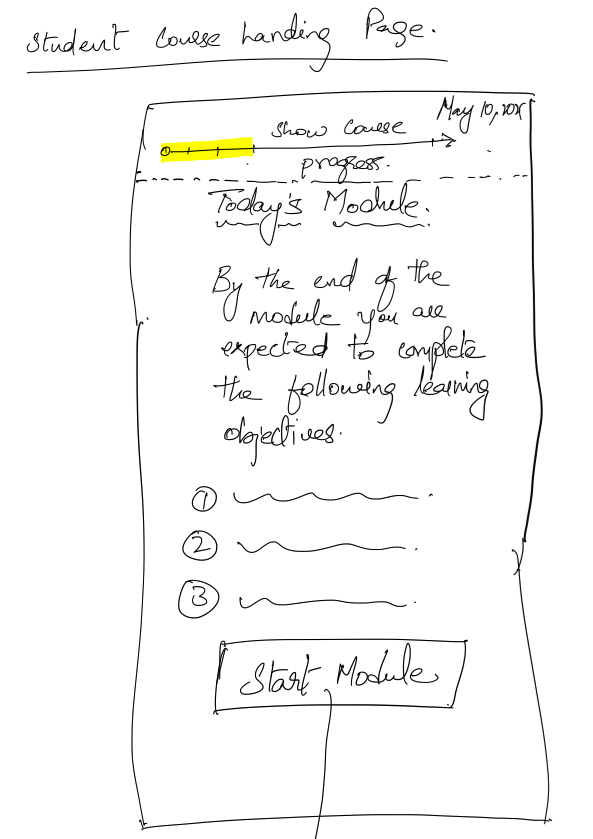 Student Course Landing Page.
May 10,
Show Course
progress.
Today's Module.
By the end of the
module you are
expected to complete
the following learning
objectives.
1
2
3
Start Module